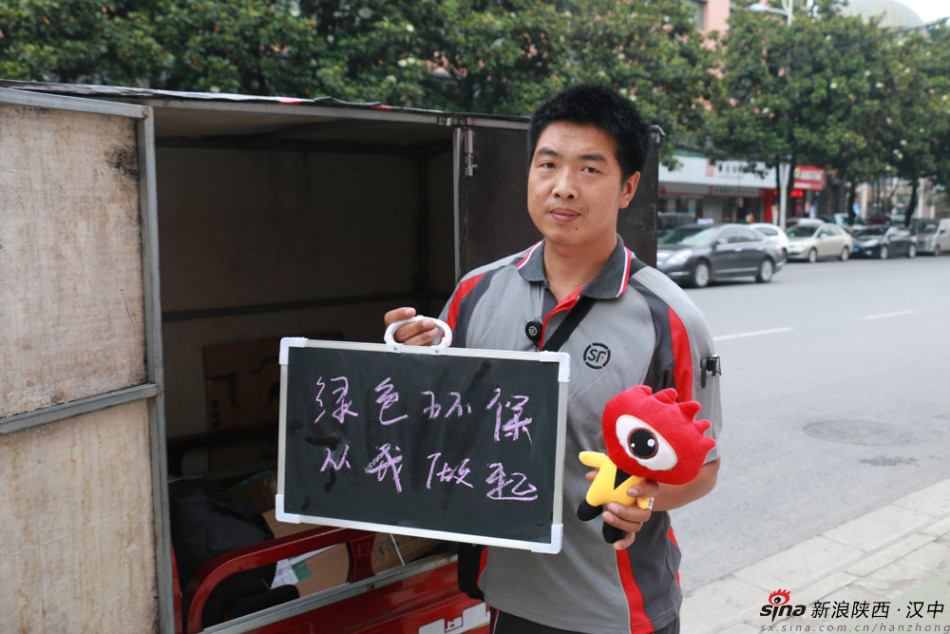 绿色环保
从我做起
SF
sina 新浪陕西·汉中
sx.sina.com.cn/hanzhong